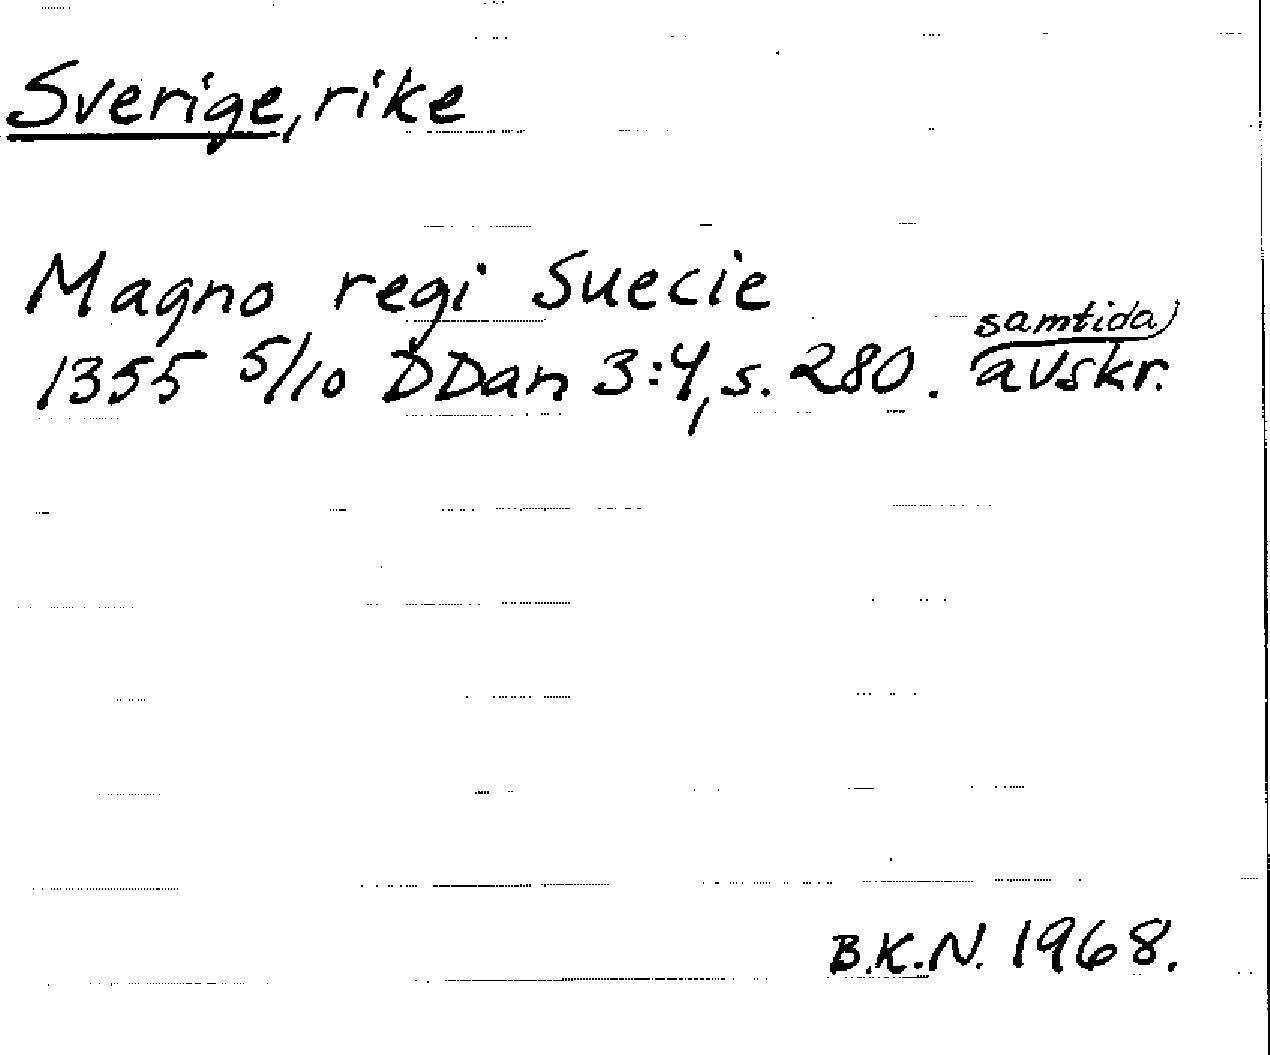 Sverige, rike
Magno regi Suecie
samtida)
1355 5/10 DDan 3:4, s. 280. avskr.
B.K.N. 1968.